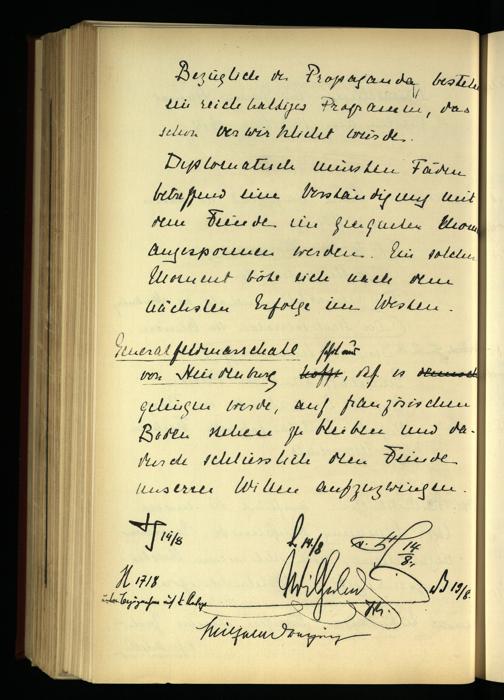 Bezüglich der Propaganda bestehe
ein reichhaltiges Programm, das
schon verwirklicht würde.
Diplomatisch müssten Fäden
betreffend eine Verständigung mit
dem Feinde im geeigneten Mom
angesponnen werden. Ein solcher
Moment böte sich nach dem
nächsten Erfolge im Westen.
Generalfeldmarschall führt aus
von Hindenburg hofft, daß es dennoch
gelingen werde, auf französischem
Boden stehen zu bleiben und da-
durch schliesslich dem Feinde
unseren Willen aufzuzwingen.
H 14/8 L. 14/8 v. H 14/8.
H 17/8 Wilhelm B 19/8.
I.R.